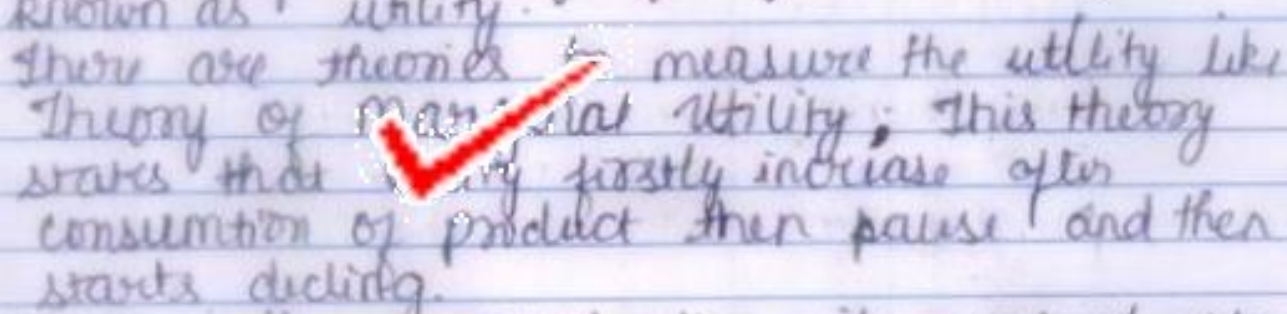 known as utility.
There are theories to measure the utility like
Theory of Marginal Utility; This theory
states that firstly increase after
consumtion of product then pause and then
starts decling.